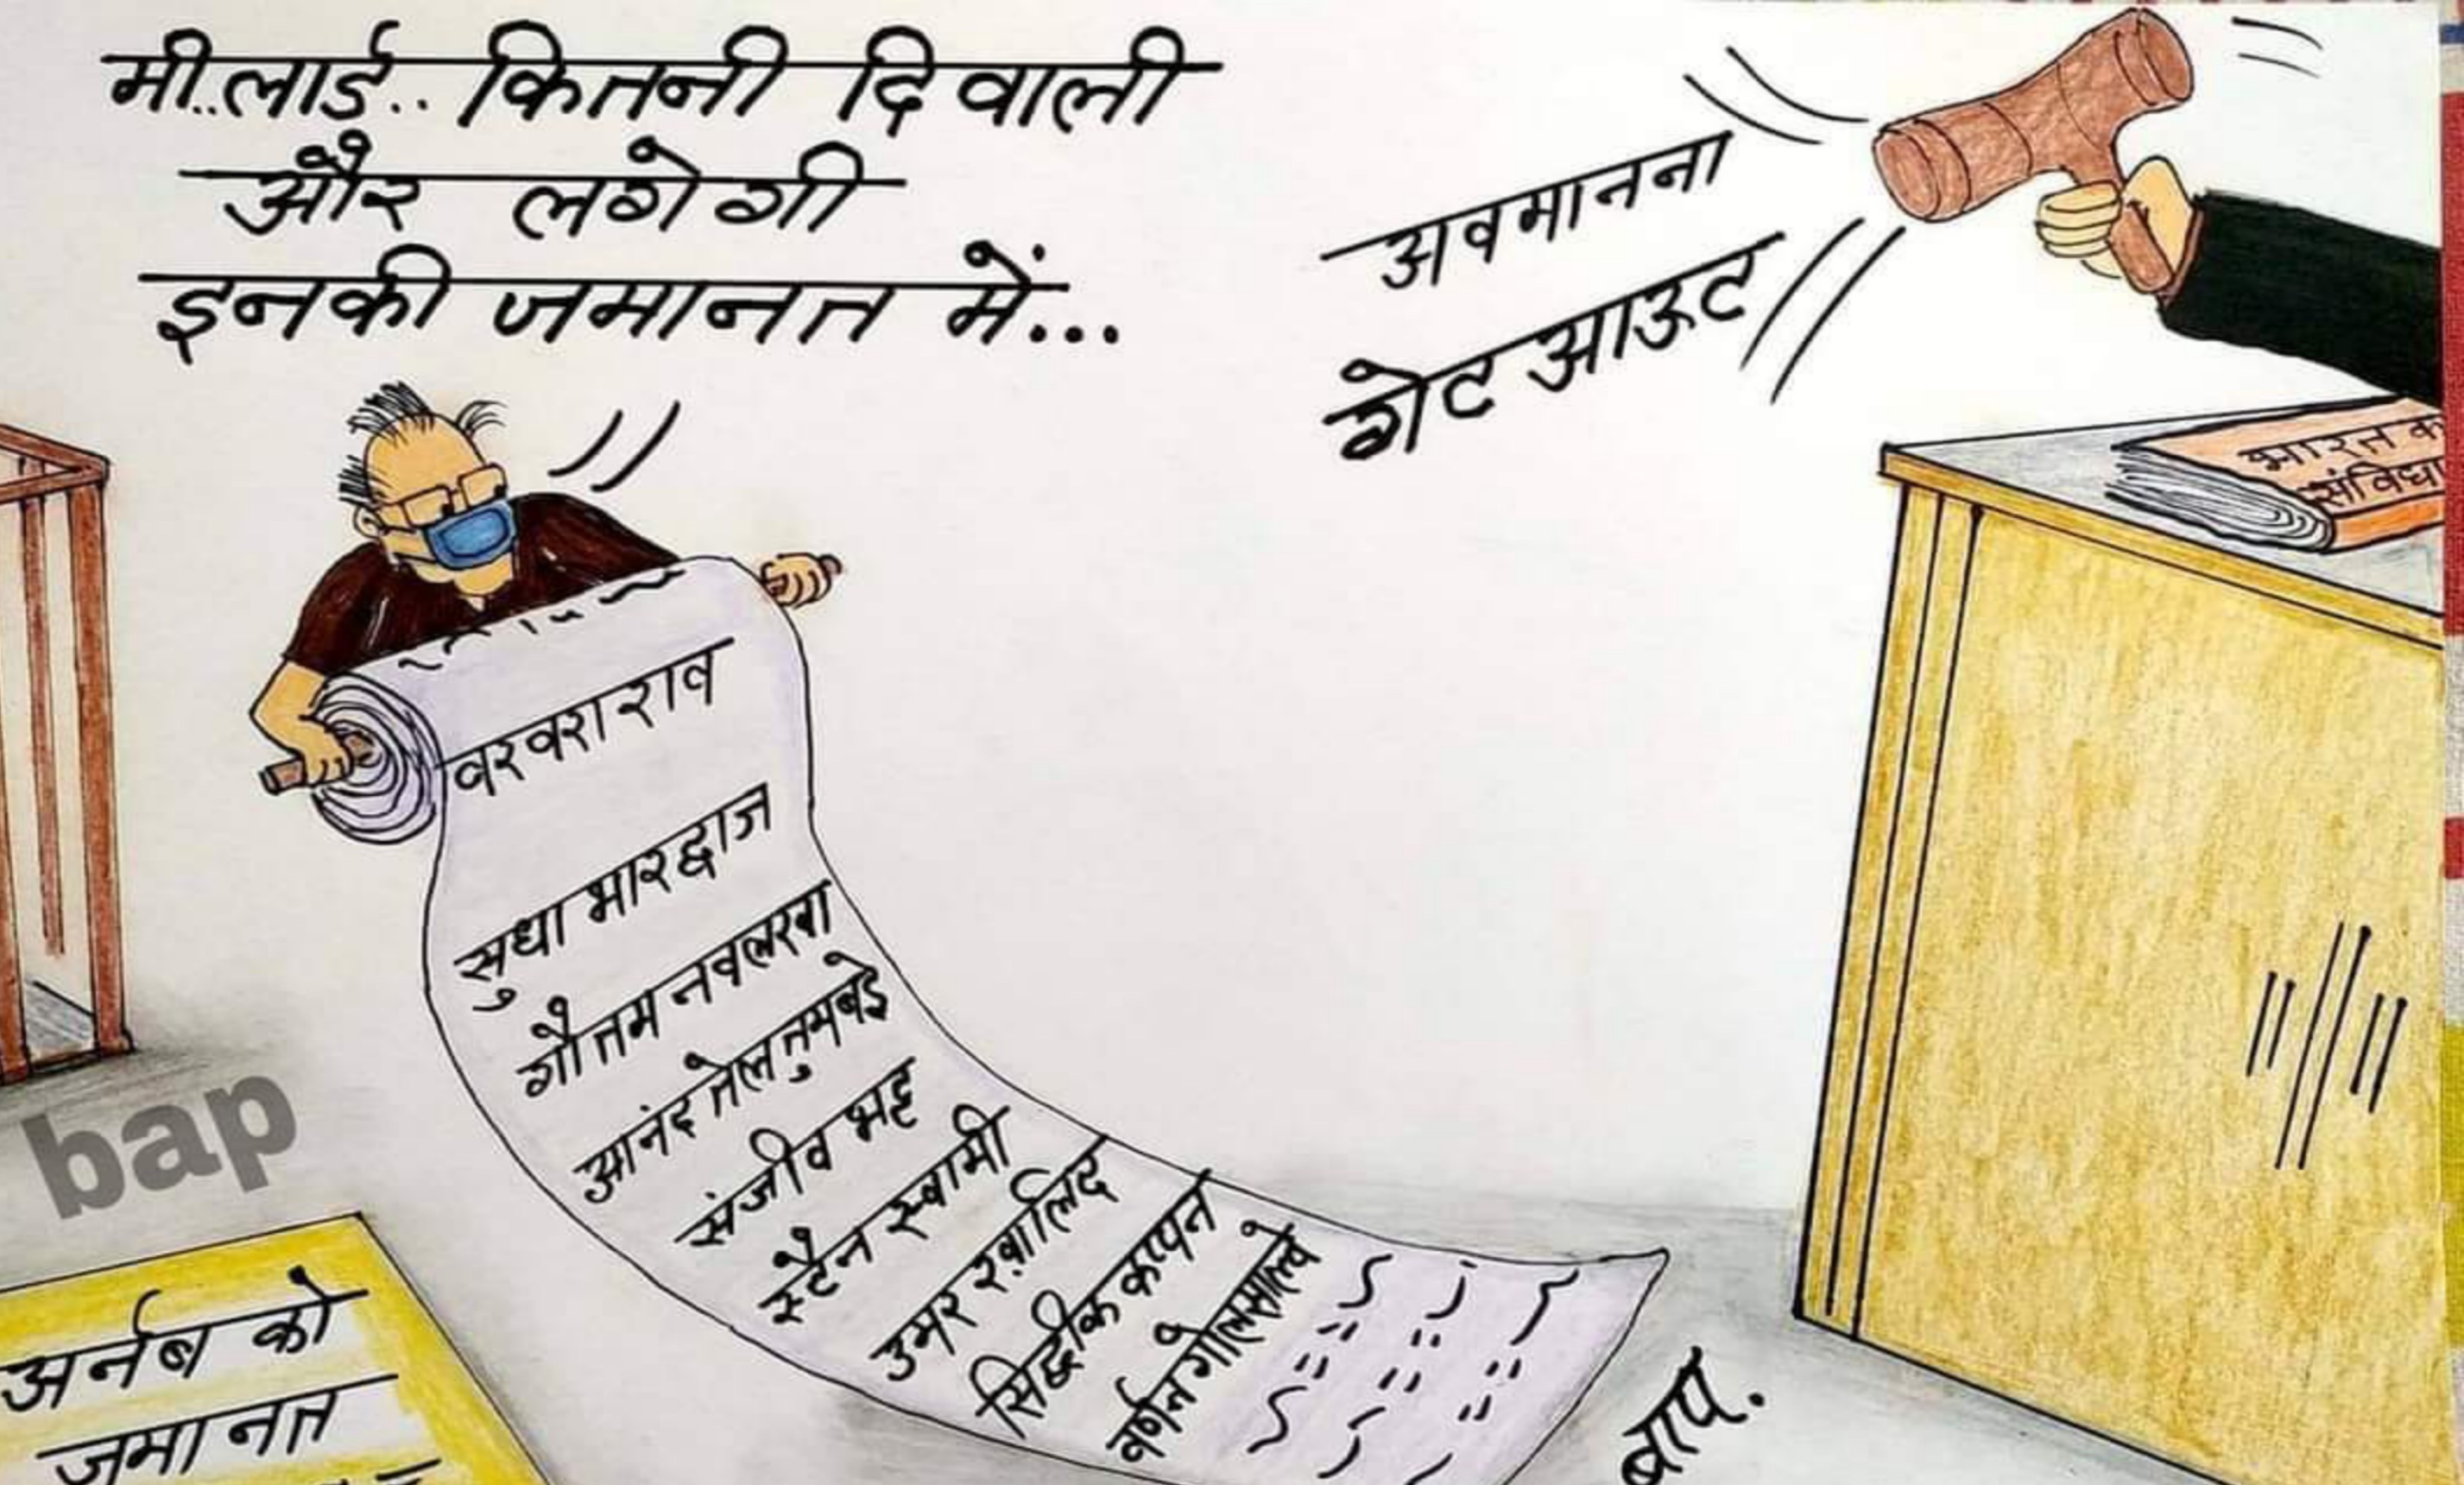 मी..लार्ड.. कितनी दिवाली
और लगेगी
इनकी जमानत में...
अवमानना
गेट आऊट
भारत का
संविधा
वरवरा राव
सुधा भारद्वाज
गौतम नवलखा
आनंद तेलतुमबडे
संजीव भट्ट
स्टैन स्वामी
उमर ख़ालिद
सिद्दीक कप्पन
वर्णन गोलसाल्वे
bap
अर्नब को
जमानत
बाप.